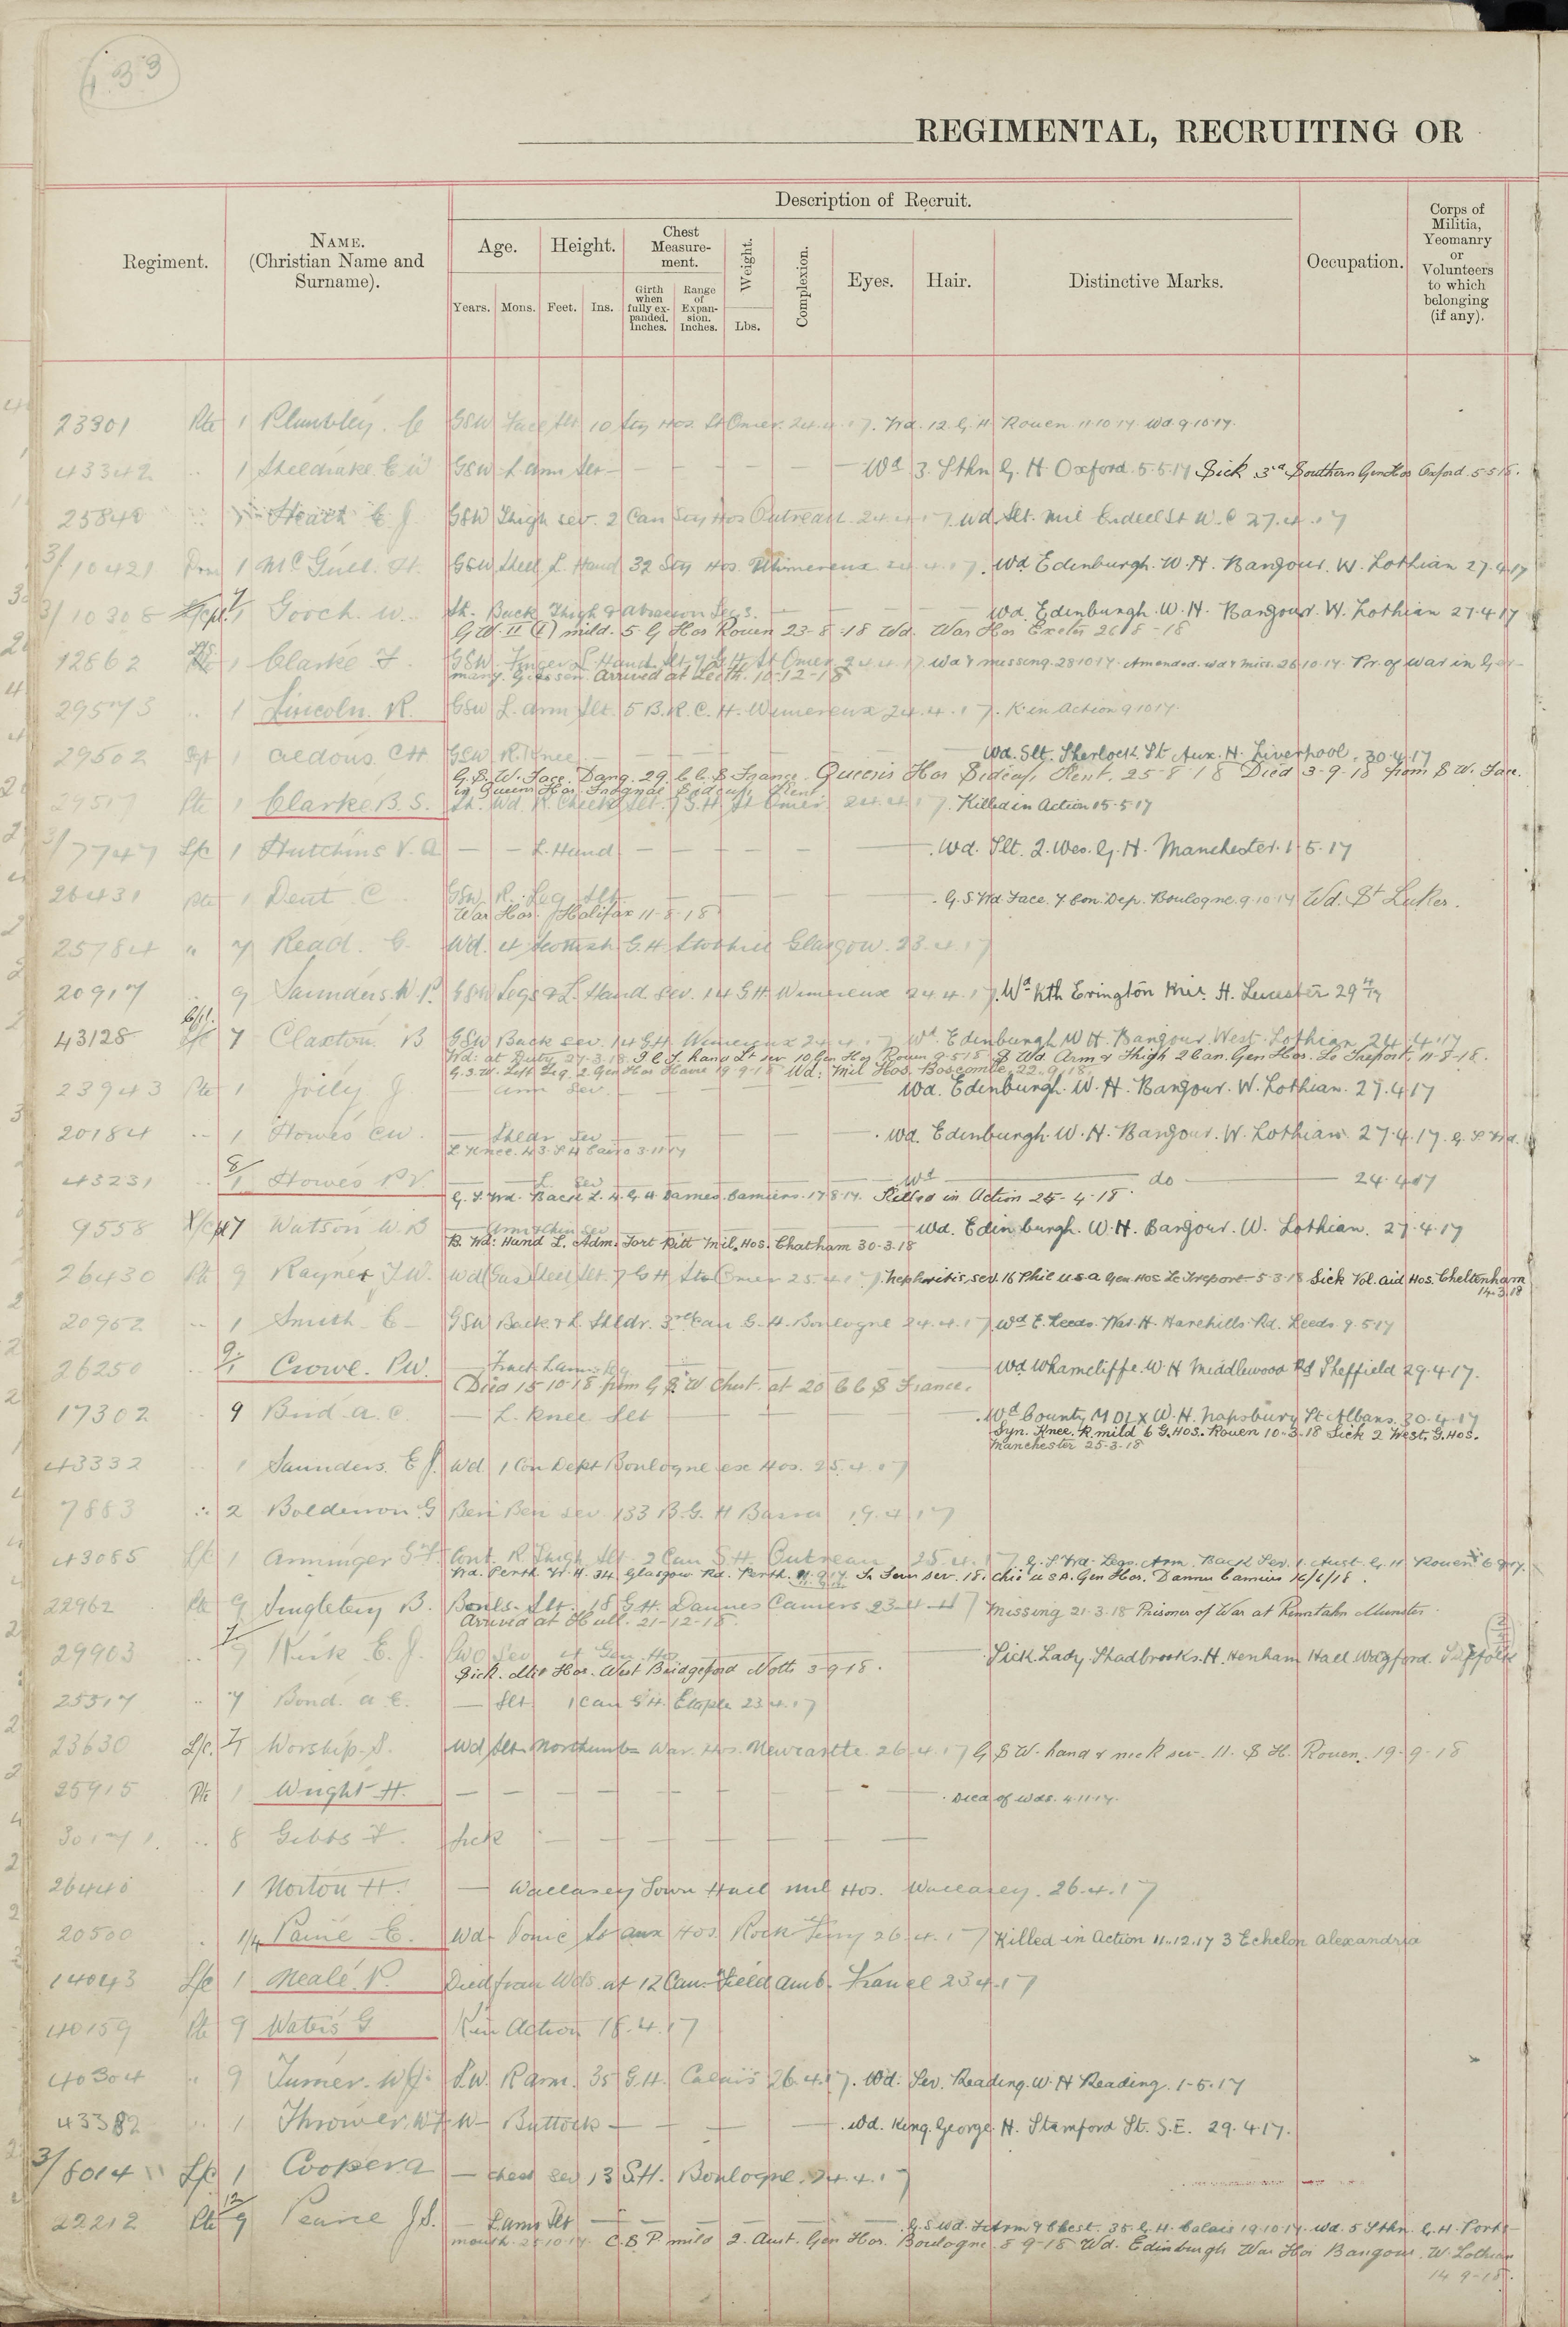 433
REGIMENTAL, RECRUITING OR
Regiment.
NAME.
(Christian Name and
Surname).
Description of Recruit.
Age.
Height.
Chest
Measure-
ment.
Weight.
Complexion.
Eyes.
Hair.
Distinctive Marks.
Occupation.
Corps of
Militia,
Yeomanry
or
Volunteers
to which
belonging
(if any).
Years.
Mons.
Feet.
Ins.
Girth
when
fully ex-
panded.
Inches.
Range
of
Expan-
sion.
Inches.
Lbs.
23301 Pte 1 Plumbley. C GSW Face Slt 10 Stny Hos. St Omer. 24.4.17. Wd. 12. G. H. Rouen. 11.10.17. Wd. 9.10.17.
43342 .. 1 Sheldrake. E W GSW L arm Sev — Wd 3. Sthn G. H Oxford. 5.5.17 Sick 3rd Southern Gen Hos Oxford 5-5-18.
25840 .. Heath E. J. GSW Thigh sev. 2 Can Stny Hos Outreau. 24.4.17. Wd. Slt. Mil Endell St W.C 27.4.17
3/10421 1 McGull. H. GSW Shell L. Hand 32 Stny Hos. Wimereux 24.4.17. Wd. Edinburgh. W. H. Bangour. W. Lothian 27.4.17
3/10308 L/cpl. 7/1 Gooch. W. Sh. Back Thigh & Abrasion Legs. — Wd. Edinburgh. W. H. Bangour. W. Lothian 27.4.17
mild. 5 G Hos Rouen 23-8-18 Wd. War Hos Exeter 26-8-18
12862 1 Clarke. F. GSW. Finger L Hand. Slt. St Omer 24.4.17 Wd & missing. 28.10.17. Amended. Wd & Miss. 26.10.17. Pr. of War in Ger-
many. Giessen. Arrived at Leith. 10-12-18
29573 .. 1 Lincoln. R. GSW L. Arm Slt. 5 B. R. C. H. Wimereux 24.4.17. K. in Action 9.10.17.
29502 1 Aldous. C H GSW R. Knee — Wd. Slt. Sherlock St Aux. H. Liverpool. 30.4.17
G. S. W. Face. Dang. 29. C. C. S France. Queens Hos Sidcup, Kent. 25-8-18 Died 3-9-18 from S W. Face.
in Queens Hos. Frognal Sidcup, Kent
29517 Pte 1 Clarke. B. S. Sh. Wd. R. Cheek Slt. 7 S. H. St Omer. 24.4.17. Killed in Action 15-5-17
3/7747 L/c 1 Hutchins V. A — L. Hand — . Wd. Slt. 2. Wes. G. H. Manchester. 1.5.17
26431 Pte 1 Dent C. GSW R. Leg Slt — . G. S. Wd. Face. 7 Con. Dep. Boulogne. 9.10.17 Wd. St Lukes.
War Hos. Halifax 11-8-18
25784 " 7 Read. C. Wd. 4 Scottish G. H. Stobhill Glasgow. 23.4.17
20917 .. 9 Saunders. W. P. GSW Legs & L. Hand. Sev. 14 G H. Wimereux 24.4.17. Wd Nth Evington Mil. H. Leicester 29 4/17
43128 7 Claxton. B GSW Back sev. 14 G H. Wimereux 24.4.17 Wd. Edinburgh W H. Bangour. West. Lothian. 24.4.17
Wd. at Duty. 27.3.18. hand Lt sev. 10 Gen Hos Rouen 9-5-18 S Wd. Arm & Thigh 2 Can. Gen Hos. Le Treport. 11-8-18.
G. S. W. Left Leg. 2. Gen Hos Havre 19-9-18 Wd: Mil Hos. Boscombe. 22.9.18
23943 Pte 1 Joily. J arm Sev. — Wd. Edinburgh. W. H. Bangour. W. Lothian. 27.4.17
20184 .. 1 Howes C W. — Shldr Sev — . Wd. Edinburgh. W. H. Bangour. W. Lothian 27.4.17. G. S. Wd.
L Knee. 43. S H Cairo 3.11.17
43231 .. 8/1 Howes P. V. — L. Sev — Wd — do — 24.4.17
G. S. Wd. Back L. 4. G H Dannes. Camiers. 17.8.17. Killed in Action 25-4-18.
9558 7 Watson W. B — Arm & Chin Sev — Wd. Edinburgh. W. H. Bangour. W. Lothian. 27.4.17
B. Wd: Hand L. Adm. Fort Pitt Mil. Hos. Chatham 30-3-18
26430 Pte 9 Rayner J. W. Wd (Gas) Shell Slt. 7 G H St Omer 25.4.17. Nephritis, sev. 16 Phil U S A Gen Hos. Le Treport 5-3-18 Sick Vol. Aid Hos. Cheltenham
14.3.18
20952 .. 1 Smith. C — GSW Back & L. Shldr. 3rd Can G. H. Boulogne 24.4.17. Wd E. Leeds. War. H. Harehills. Rd. Leeds 9.5.17
26250 .. 9/1 Crowe. P W. — Fract. L arm — Wd. Wharncliffe. W. H Middlewood Rd Sheffield 29.4.17.
Died 15-10-18 from G S W Chest. at 20 C C S France.
17302 .. 9 Bird. A. C. — L. Knee Slt — . Wd County M DLX W. H. Napsbury St Albans. 30.4.17
Syn. Knee. R. mild 6 G. HOS. Rouen 10-3-18 Sick 2 West. G. HOS.
Manchester 25-3-18
43332 1 Saunders. E J. Wd. 1 Con Depot Boulogne ex Hos. 25.4.17
7883 2 Balderson. G Beri Beri sev. 133 B. G. H Basra 19.4.17
43085 L/c 1 Arminger S F. Cont. R. Thigh Slt. 2 Can S. H. Outreau 25.4.17. G. S Wd. Legs. Arm. Back Sev. 1. Aust. G H. Rouen
Wd. Perth. W. H. 34 Glasgow Rd. Perth. 18. Chi. U S A. Gen Hos. Dannes Camiers 16/6/18.
22962 Pte 9 Singleton B. Slt. 18 G H. Dannes Camiers 23.4.17 Missing 21.3.18 Prisoner of War at Munster.
Arrived at Hull. 21-12-18.
29903 Kirk E. J. Sev — Sick. Lady Stadbrooks. H. Henham Hall Wangford. Suffolk
Sick. Mil Hos. West Bridgeford Notts 3-9-18.
25317 " 7 Bond. A. E. — Slt. 1 Can G H. Etaple 23.4.17
23630 L/c. 7/1 Worship. S. Wd Slt. Northumb War. Hos. Newcastle. 26.4.17 G S W. hand & neck sev. 11. S H. Rouen. 19-9-18
25915 Pte 1 Wright H. — . Died of Wds. 4.11.17.
.. 8 Gibbs F. Sick —
26440 1 Norton H. — Wallasey Town Hall Mil Hos. Wallasey. 26.4.17
20500 1/4 Paine. E. Wd. Aux Hos. Rock Ferry 26.4.17 Killed in Action 11.12.17 3 Echelon Alexandria
14043 L/c 1 Neale. P. Died from Wds. at 12 Can. Field Amb. France 23.4.17
40159 Pte 9 Waters G K in Action 18.4.17
40304 " 9 Turner. W J. S. W. R arm. 35 G. H. Calais 26.4.17. Wd. Sev. Reading. W. H Reading. 1-5-17
43382 .. 1 Thrower. W F W — Buttock — . Wd. King. George. H. Stamford St. S.E. 29.4.17.
3/8014 L/c 1 Cooper. A — chest sev 13 S.H. Boulogne. 24.4.17
22212 Pte 12/9 Pearce J. S. — L. arm Slt — G. S Wd. F. Arm & Chest. 35. G. H. Calais 19.10.17. Wd. 5 Sthn. G. H. Ports-
mouth. 25.10.17. mild 2. Aust. Gen Hos. Boulogne. 8-9-18 Wd. Edinburgh War Hos Bangour. W. Lothian
14-9-18.